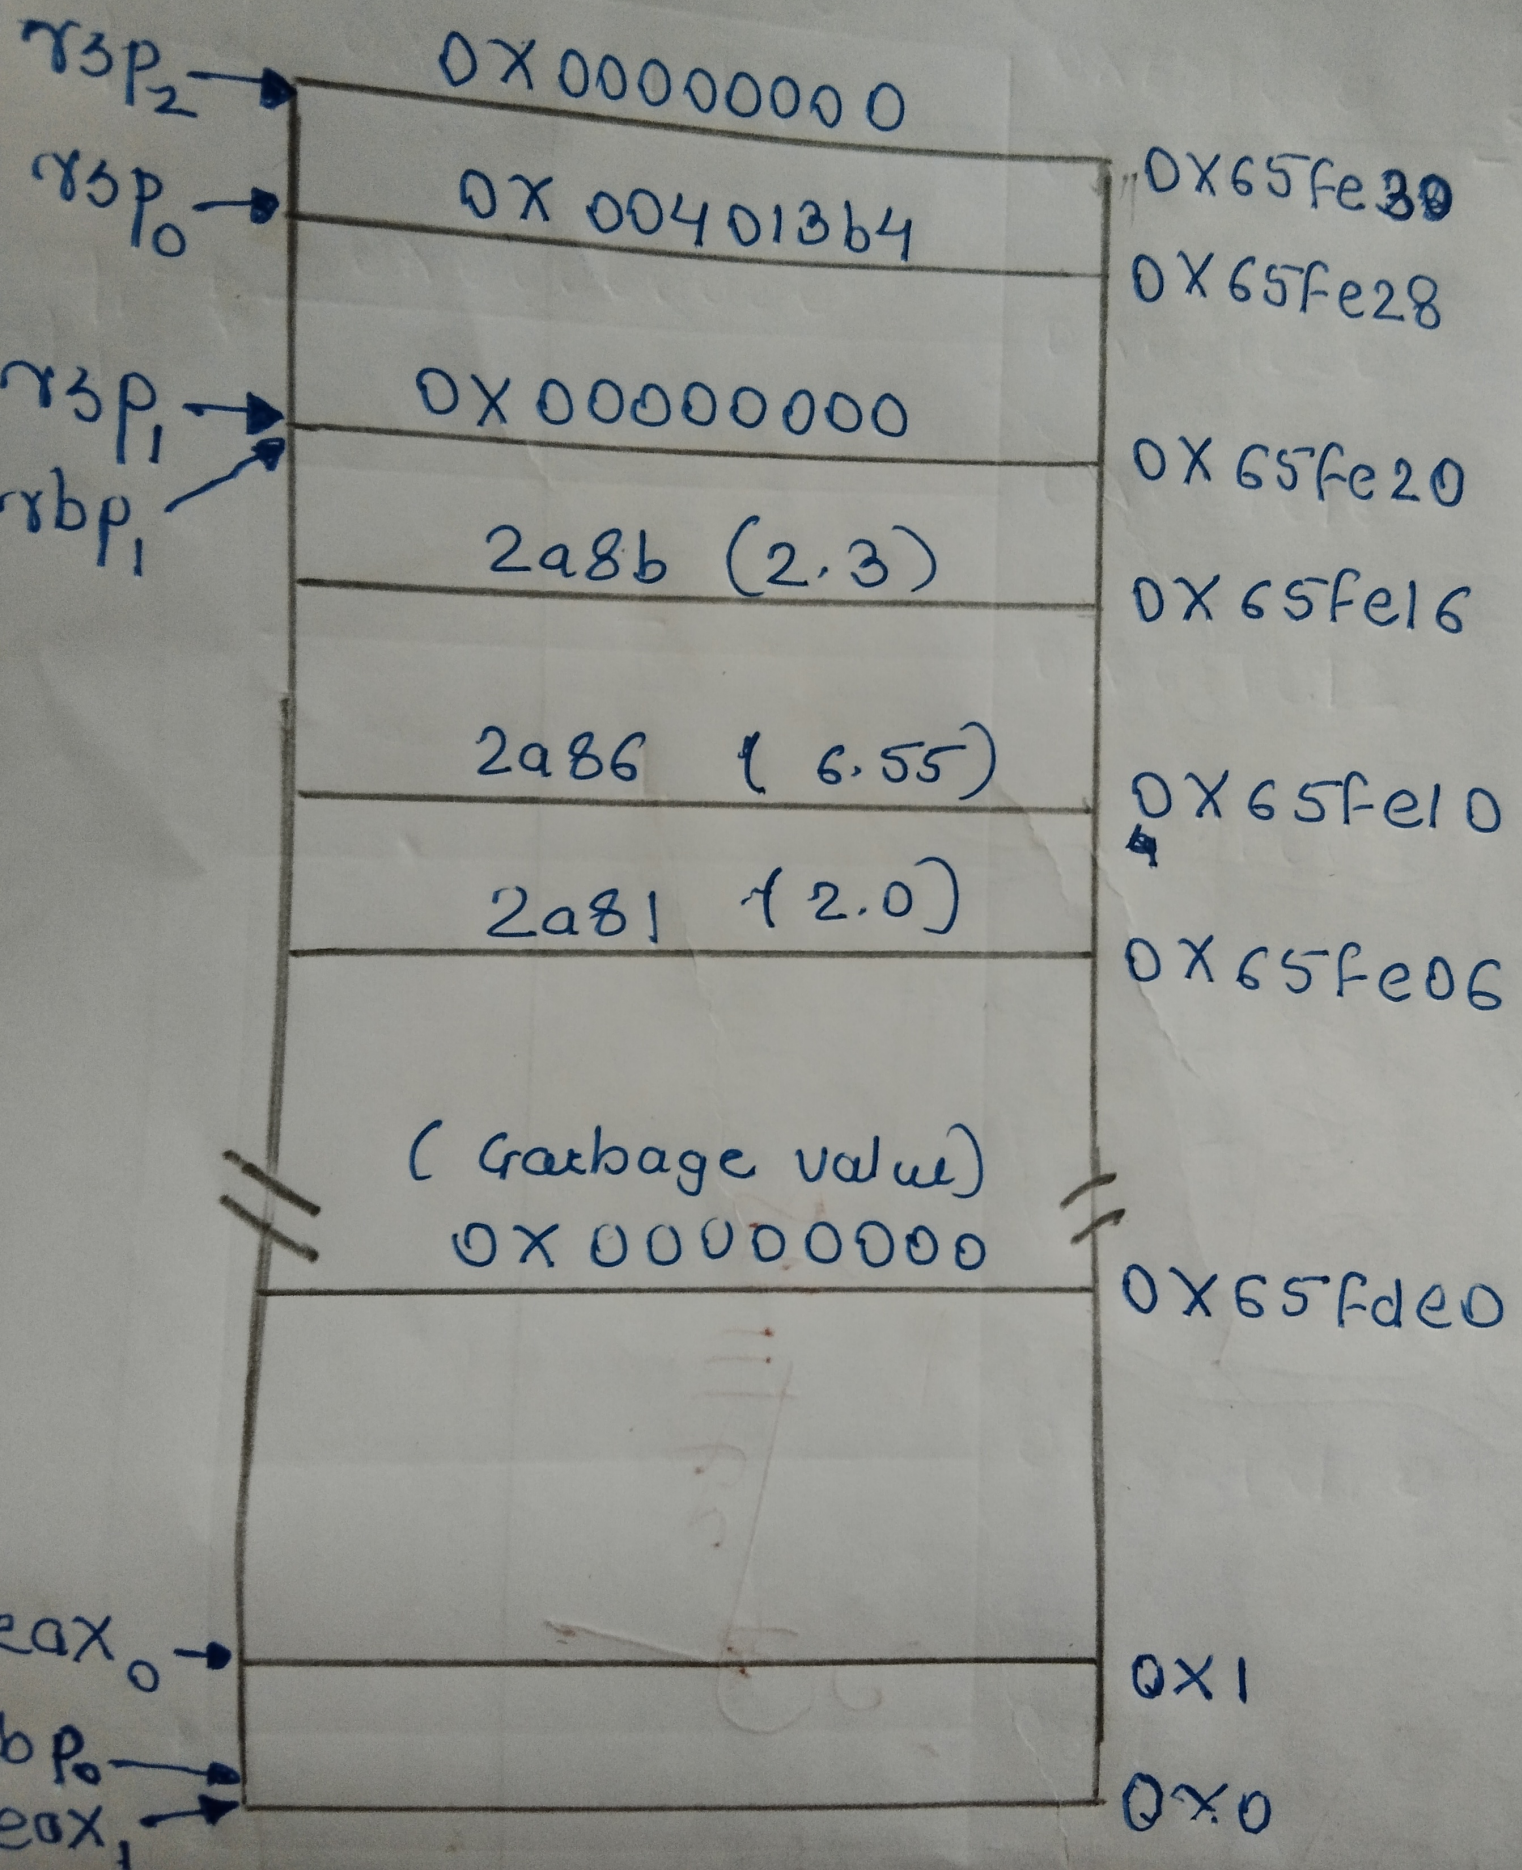 rsp2 0X00000000
0X65fe30
rsp0 0X004013b4
0X65fe28
rsp1 0X00000000
0X65fe20
rbp1
2a8b (2.3)
0X65fe16
2a86 ( 6.55)
0X65fe10
2a81 (2.0)
0X65fe06
(Garbage value)
0X00000000
0X65fde0
eax0 0X1
bp0
eax1 0X0